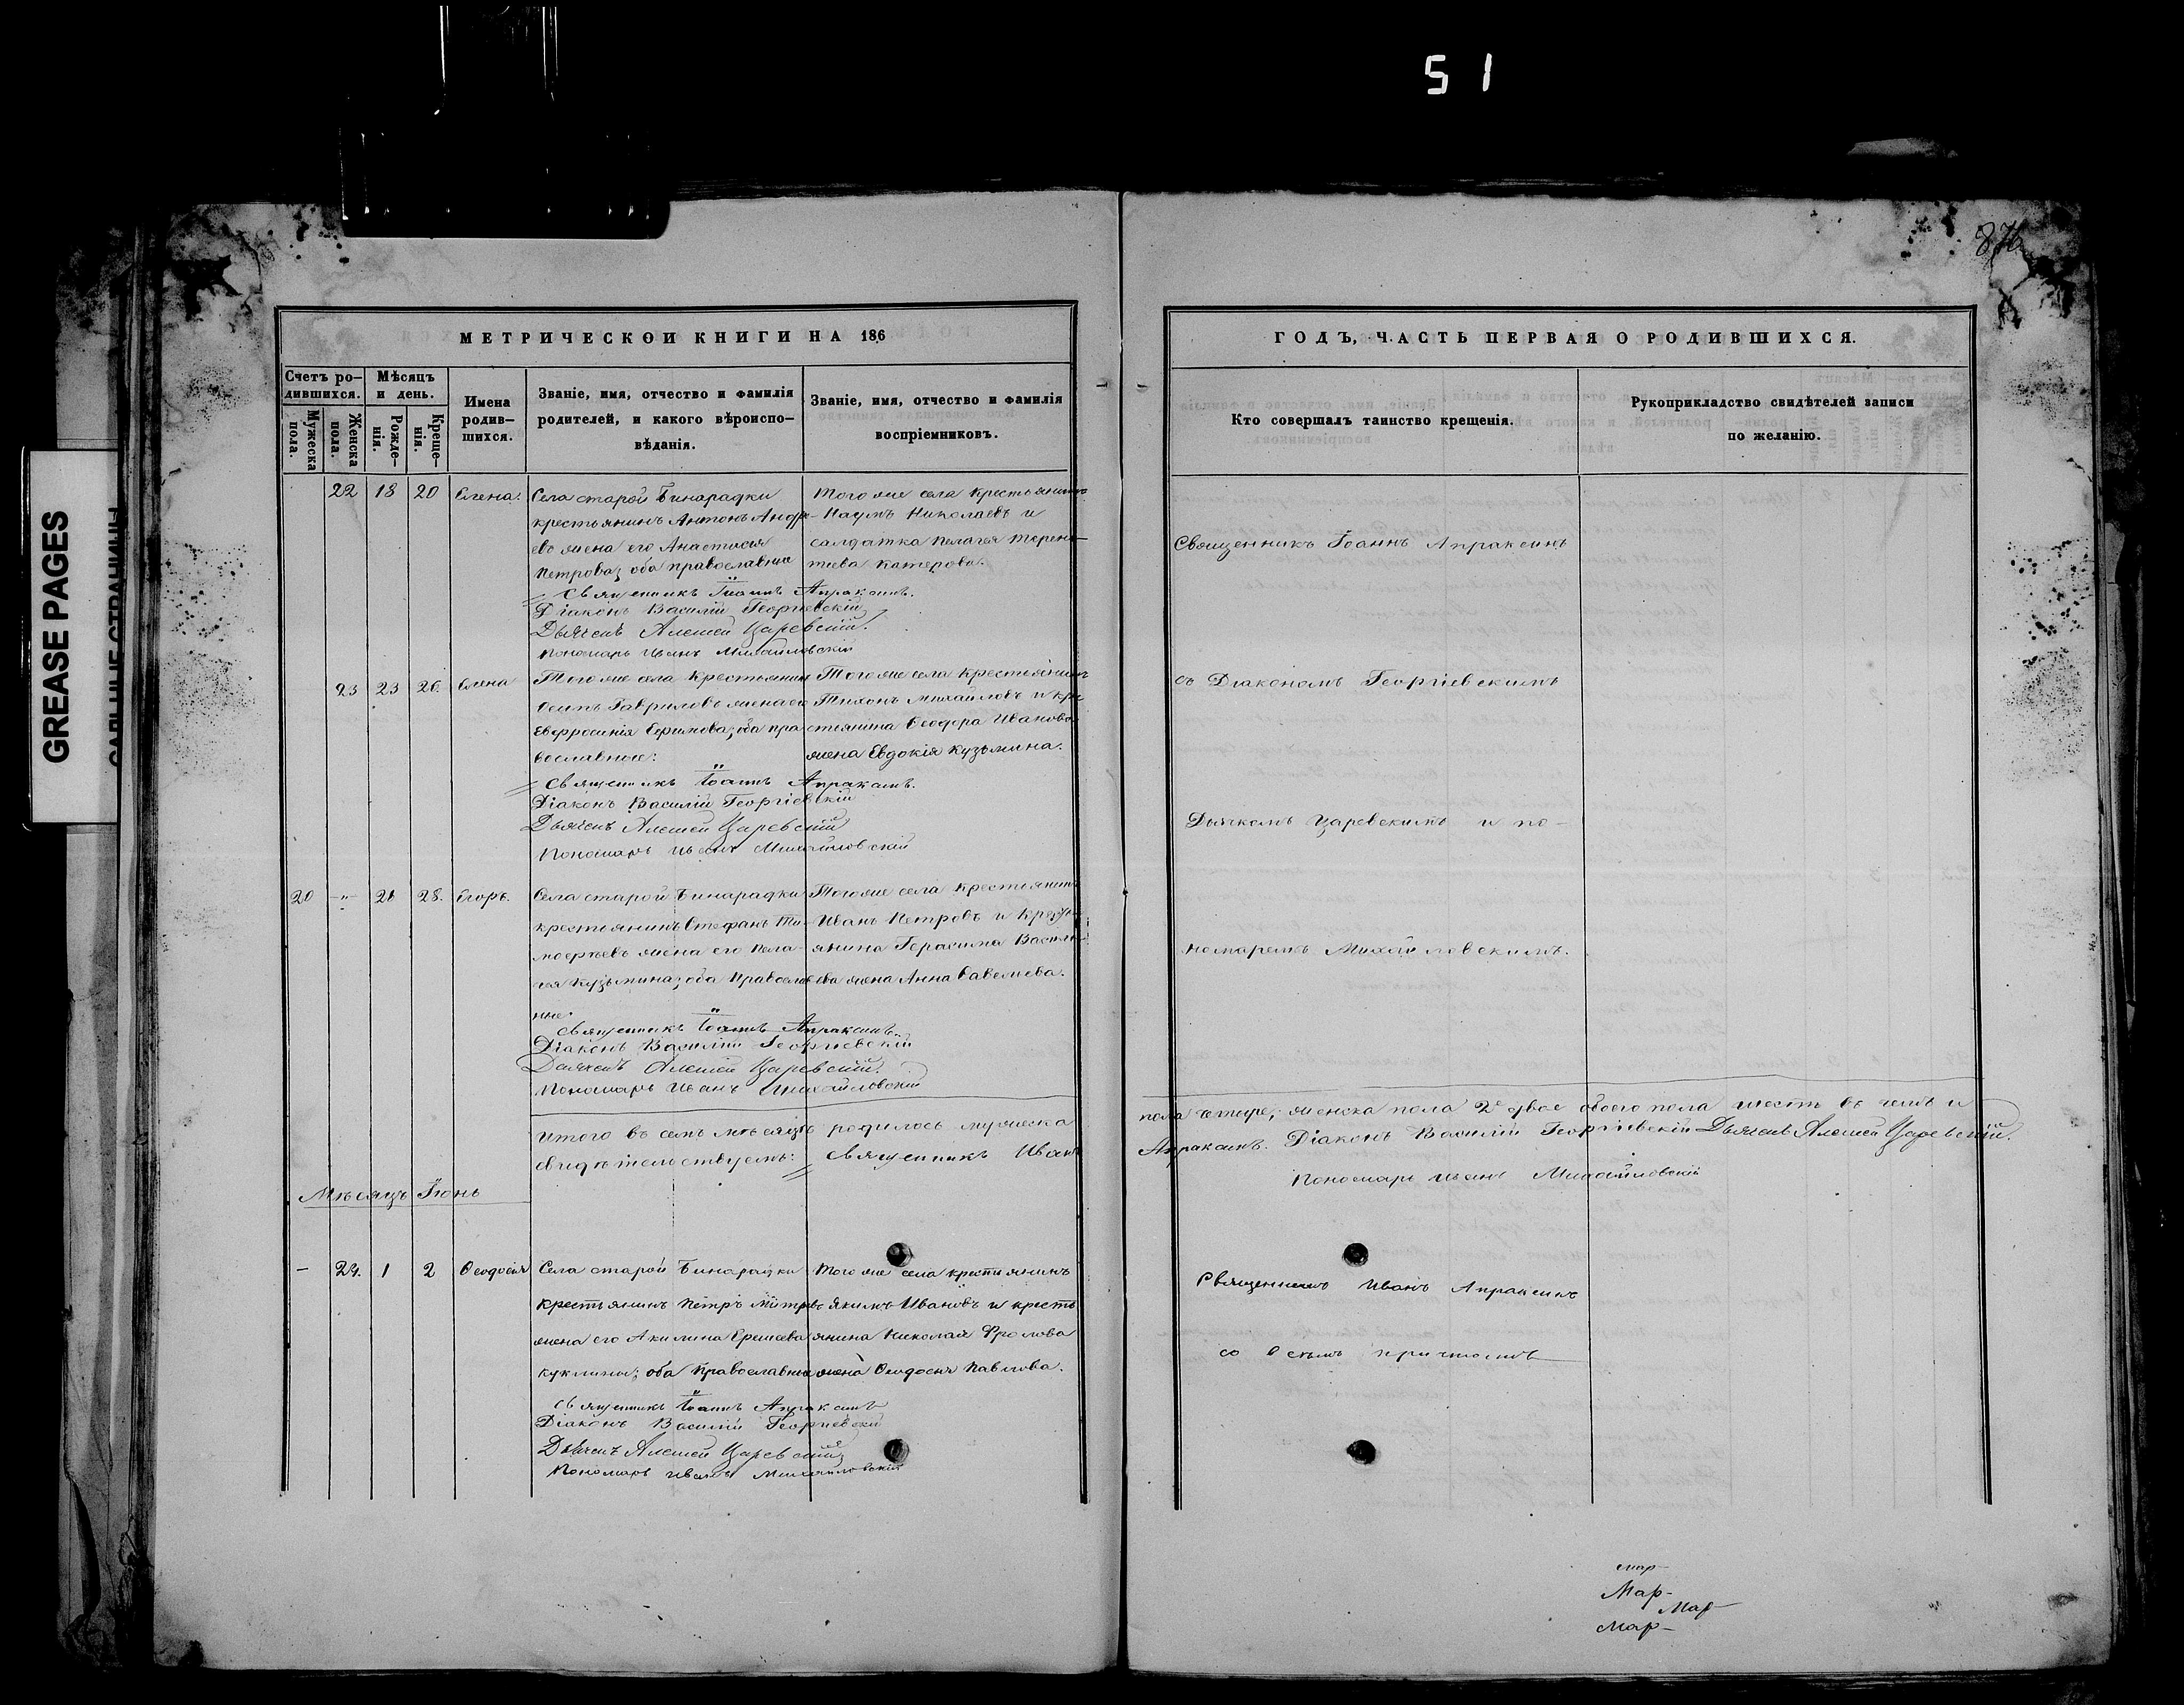 51
876
GREASE PAGES
САЛЬНЫЕ СТРАНИЦЫ
МЕТРИЧЕСКОЙ КНИГИ НА 186
Счетъ ро-
дившихся.
Мужеска
пола.
Женска
пола.
Мѣсяцъ
и день.
Рожде-
нія.
Креще-
нія.
Имена
родив-
шихся.
Званіе, имя, отчество и фамилія
родителей, и какого вѣроиспо-
вѣданія.
Званіе, имя, отчество и фамилія
воспріемниковъ.
22 18 20 Елена.
Села старой Бинарадки
крестьянинъ Антонъ Андре-
евъ жена его Анастасія
Петрова; оба православные
Того же села крестьянинъ
Наумъ Николаевъ и
салдатка Пелагея Терень-
тьева Катерова.
Священникъ Іоаннъ Апраксинъ.
Діаконъ Василій Георгіевскій
Дьячекъ Алексей Царевскій.
Пономарь Иванъ Михайловскій
23 23 26. Елена
Того же села крестьянинъ
Осипъ Гавриловъ жена его
Евфросинія Ефимова; оба пра-
вославные:
Того же села крестьянинъ
Тихонъ Михайловъ и кре-
стьянина Ѳеодора Иванова
жена Евдокія Кузьмина.
Священникъ Іоаннъ Апраксинъ.
Діаконъ Василій Георгіевскій
Дьячекъ Алексей Царевскій
Пономарь Иванъ Михайловскій
20 -"- 26 28. Егоръ.
Села старой Бинарадки
крестьянинъ Стефанъ Ти-
моѳеевъ жена его Пела-
гея Кузьмина; оба православ-
ные.
Того же села крестьянинъ
Иванъ Петровъ и кресть-
янина Герасима Василь-
ева жена Анна Савельева.
Священникъ Іоаннъ Апраксинъ.
Діаконъ Василій Георгіевскій
Дьячекъ Алексей Царевскій.
Пономарь Иванъ Михайловскій
Итого въ семъ мѣсяцѣ родилось мужеска
свидѣтельствуемъ: Священникъ Иванъ
Мѣсяцъ Іюнь
- 24. 1 2 Ѳеодосія
Села старой Бинарадки
крестьянинъ Петръ
жена его Акилина
Куклины; оба православные
Того же села крестьянинъ
Якимъ Ивановъ и кресть
янина Николая Фролова
жена Ѳеодосія Павлова.
Священникъ Іоаннъ Апраксинъ
Діаконъ Василій Георгіевскій
Дьячекъ Алексей Царевскій
Пономарь Иванъ Михайловскій
ГОДЪ, ЧАСТЬ ПЕРВАЯ О РОДИВШИХСЯ.
Кто совершалъ таинство крещенія.
Рукоприкладство свидѣтелей записи
по желанію.
Священникъ Іоаннъ Апраксинъ
съ Діакономъ Георгіевскимъ
Дьячкомъ Царевскимъ и по-
номаремъ Михайловскимъ.
пола четыре, женска пола 2е двое обоего пола шесть въ чемъ и
Апраксинъ. Діаконъ Василій Георгіевскій Дьячекъ Алексей Царевскій.
Пономарь Иванъ Михайловскій
Священникъ Иванъ Апраксинъ
со всемъ причтомъ
мар-
Мар-
Мар-
Мар-